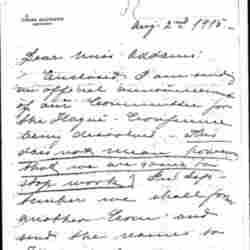 Aug 2nd 1915 -
Dear Miss Addams:
Enclosed I am sending
an official announcement
of our Committee for
the Hague - Conference
being dissolved - This
does not mean however
that we are going to
stop work! In Sep-
tember we shall form
another Com - and
send the names to